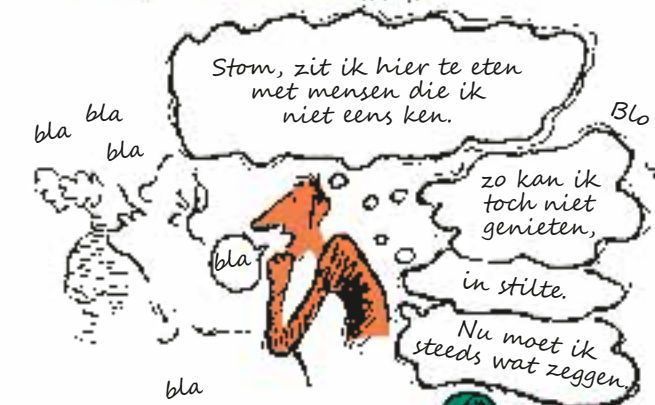 Stom, zit ik hier te eten
met mensen die ik
niet eens ken.
bla
bla
bla
Blo
zo kan ik
toch niet
genieten,
bla
in stilte.
Nu moet ik
steeds wat zeggen.
bla